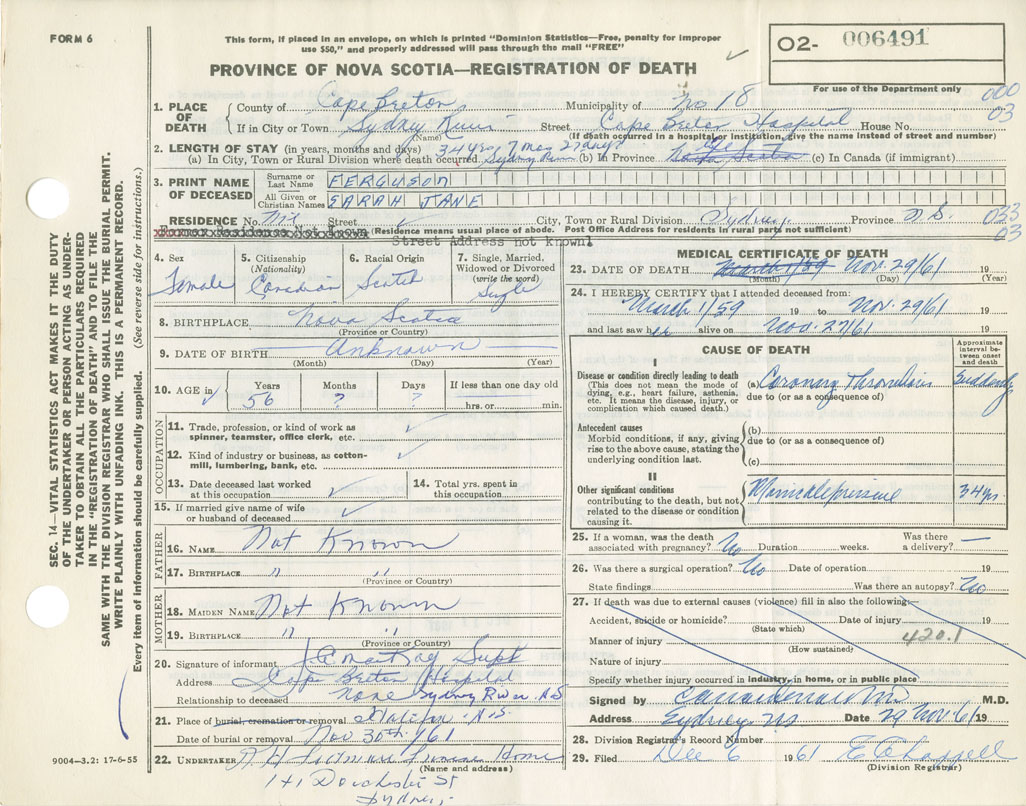 FORM 6
This form, if placed in an envelope, on which is printed "Dominion Statistics—Free, penalty for improper
use $50," and properly addressed will pass through the mail "FREE"
PROVINCE OF NOVA SCOTIA—REGISTRATION OF DEATH
02- 006491
For use of the Department only
000
03
1. PLACE OF DEATH
County of Cape Breton Municipality of No 18
If in City or Town Sydney River Street Cape Breton Hospital House No.
(Name) (If death occurred in a hospital or institution, give the name instead of street and number)
2. LENGTH OF STAY (in years, months and days) 34 yrs 7 mos 27 days
(a) In City, Town or Rural Division where death occurred Sydney River (b) In Province Nova Scotia (c) In Canada (if immigrant)
3. PRINT NAME OF DECEASED
Surname or Last Name FERGUSON
All Given or Christian Names SARAH JANE
RESIDENCE No. Street City, Town or Rural Division Sydney Province N.S. 033
03
Former Residence Not Known (Residence means usual place of abode. Post Office Address for residents in rural parts not sufficient)
Street Address not known
4. Sex Female
5. Citizenship (Nationality) Canadian
6. Racial Origin Scotch
7. Single, Married, Widowed or Divorced (write the word) Single
8. BIRTHPLACE Nova Scotia
(Province or Country)
9. DATE OF BIRTH Unknown
(Month) (Day) (Year)
10. AGE in Years 56 Months ? Days ? If less than one day old hrs. or min.
OCCUPATION
11. Trade, profession, or kind of work as spinner, teamster, office clerk, etc.
12. Kind of industry or business, as cotton-mill, lumbering, bank, etc.
13. Date deceased last worked at this occupation
14. Total yrs. spent in this occupation
15. If married give name of wife or husband of deceased
FATHER
16. NAME Not Known
17. BIRTHPLACE " "
(Province or Country)
MOTHER
18. MAIDEN NAME Not Known
19. BIRTHPLACE " "
(Province or Country)
20. Signature of informant Supt
Address Cape Breton Hospital
Relationship to deceased None Sydney River N.S
21. Place of burial, cremation or removal Halifax N.S.
Date of burial or removal Nov 30th /61
22. UNDERTAKER Home
(Name and address)
141 Dorchester St
Sydney
9004—3.2: 17-6-55
MEDICAL CERTIFICATE OF DEATH
23. DATE OF DEATH March 1/59 Nov. 29/61 19
(Month) (Day) (Year)
24. I HEREBY CERTIFY that I attended deceased from:
March 1/59 19 to Nov. 29/61 19
and last saw her alive on Nov. 27/61 19
CAUSE OF DEATH
Approximate interval between onset and death
I
Disease or condition directly leading to death
(This does not mean the mode of dying, e.g., heart failure, asthenia, etc. It means the disease, injury, or complication which caused death.)
(a) Coronary Thrombosis Suddenly
due to (or as a consequence of)
Antecedent causes
Morbid conditions, if any, giving rise to the above cause, stating the underlying condition last.
(b)
due to (or as a consequence of)
(c)
II
Other significant conditions
contributing to the death, but not related to the disease or condition causing it.
Manic depressive 34 yrs.
25. If a woman, was the death associated with pregnancy? No Duration weeks. Was there a delivery? —
26. Was there a surgical operation? No Date of operation 19
State findings Was there an autopsy? No
27. If death was due to external causes (violence) fill in also the following:—
Accident, suicide or homicide? Date of injury 19
(State which)
Manner of injury 420.1
(How sustained)
Nature of injury
Specify whether injury occurred in industry, in home, or in public place
Signed by M.D.
Address Sydney NS Date 29 Nov. 61 19
28. Division Registrar's Record Number
29. Filed Dec 6 1961 E C Chappell
(Division Registrar)
SEC. 14—VITAL STATISTICS ACT MAKES IT THE DUTY
OF THE UNDERTAKER OR PERSON ACTING AS UNDER-
TAKER TO OBTAIN ALL THE PARTICULARS REQUIRED
IN THE "REGISTRATION OF DEATH" AND TO FILE THE
SAME WITH THE DIVISION REGISTRAR WHO SHALL ISSUE THE BURIAL PERMIT.
WRITE PLAINLY WITH UNFADING INK. THIS IS A PERMANENT RECORD.
Every item of information should be carefully supplied. (See reverse side for instructions.)